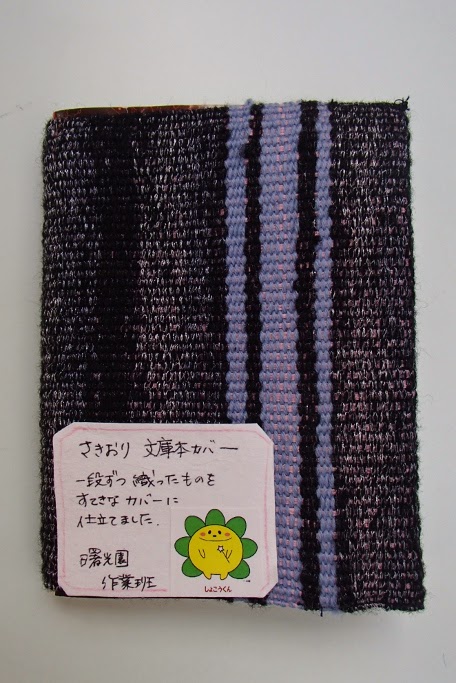 さきおり 文庫本カバー
一段ずつ織ったものを
すてきなカバーに
仕立てました.
曙光園
作業班
しょこうくん